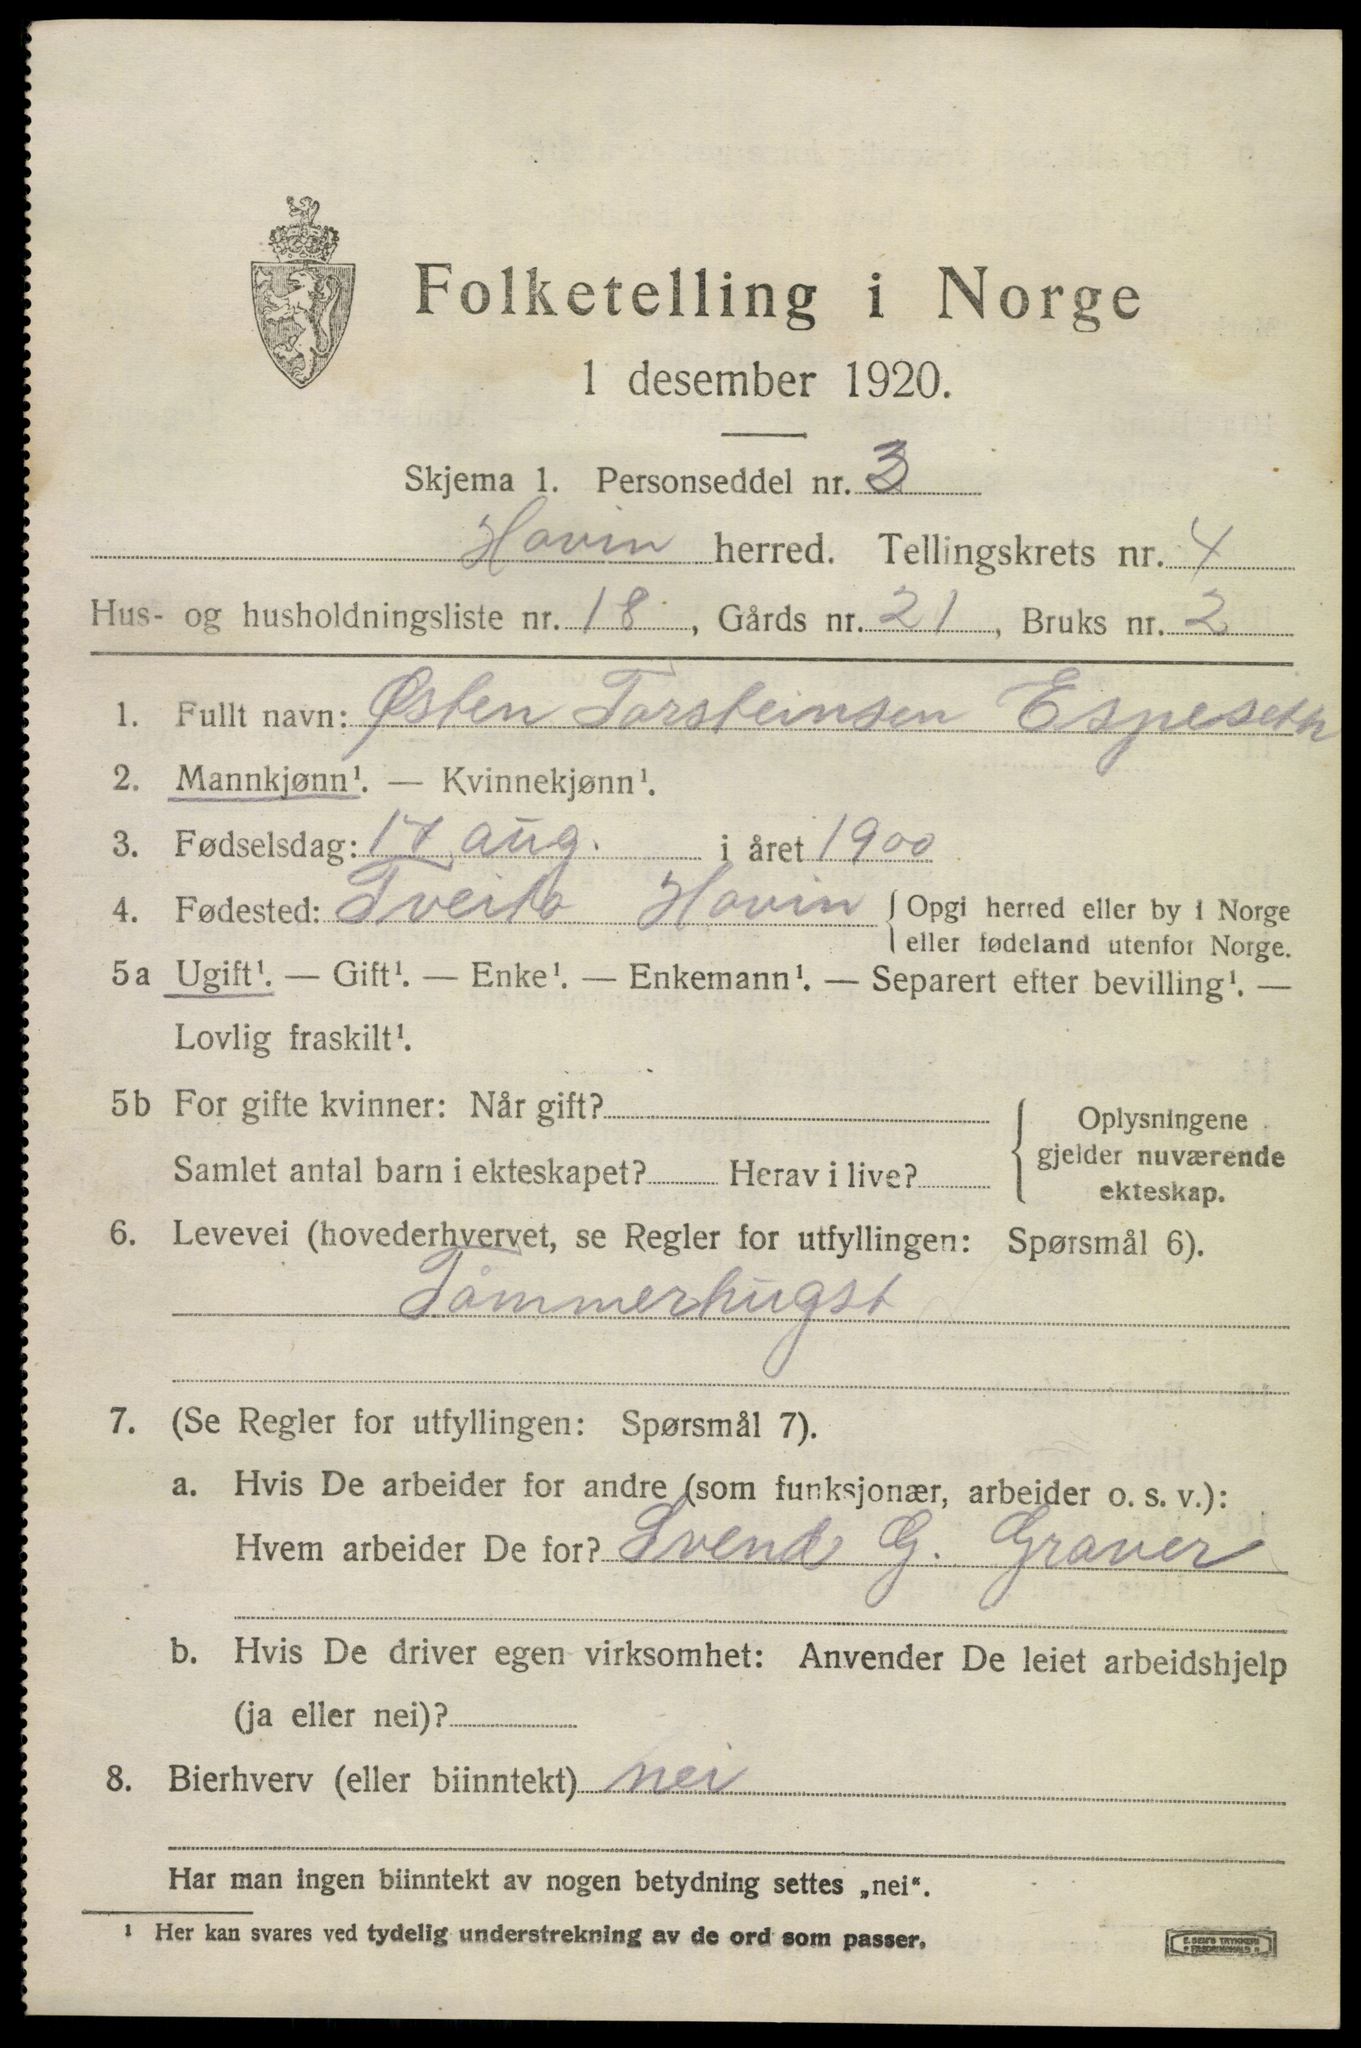 Folketelling i Norge
1 desember 1920.
Skjema 1. Personseddel nr. 3
Hovin herred. Tellingskrets nr. 4
Hus- og husholdningsliste nr. 18, Gårds nr. 21, Bruks nr. 2
1. Fullt navn: Østen Torsteinsen Espeseth
2. Mannkjønn¹. — Kvinnekjønn¹.
3. Fødselsdag: 17 aug. i året 1900
4. Fødested: Tveito Hovin { Opgi herred eller by i Norge
eller fødeland utenfor Norge.
5a Ugift¹. — Gift¹. — Enke¹. — Enkemann¹. — Separert efter bevilling¹. —
Lovlig fraskilt¹.
5b For gifte kvinner: Når gift?
Samlet antal barn i ekteskapet? Herav i live?
Oplysningene
gjelder nuværende
ekteskap.
6. Levevei (hovederhvervet, se Regler for utfyllingen: Spørsmål 6).
Tømmerhugst
7. (Se Regler for utfyllingen: Spørsmål 7).
a. Hvis De arbeider for andre (som funksjonær, arbeider o. s. v.):
Hvem arbeider De for? Svend G. Graver
b. Hvis De driver egen virksomhet: Anvender De leiet arbeidshjelp
(ja eller nei)?
8. Bierhverv (eller biinntekt) nei
Har man ingen biinntekt av nogen betydning settes „nei“.
¹ Her kan svares ved tydelig understrekning av de ord som passer.